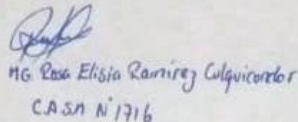 MG Rosa Elisia Ramirez Culquicondor
C.A.S.M N° 1716